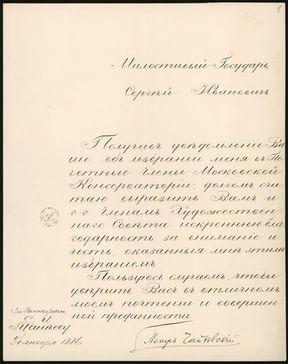 Милостивый Государь
Сергѣй Ивановичъ
Получивъ увѣдомленіе Ва-
ше объ избраніи меня въ По-
четные члены Московской
Консерваторіи, долгомъ счи-
таю выразить Вамъ и
г.г. членамъ Художествен-
наго Совѣта искреннюю бла-
годарность за вниманіе и
честь, оказанныя мнѣ этимъ
избраніемъ.
Пользуюсь случаемъ, чтобы
увѣрить Васъ въ отличномъ
моемъ почтеніи и совершен-
ной преданности
Петръ Чайковскій
Танѣеву